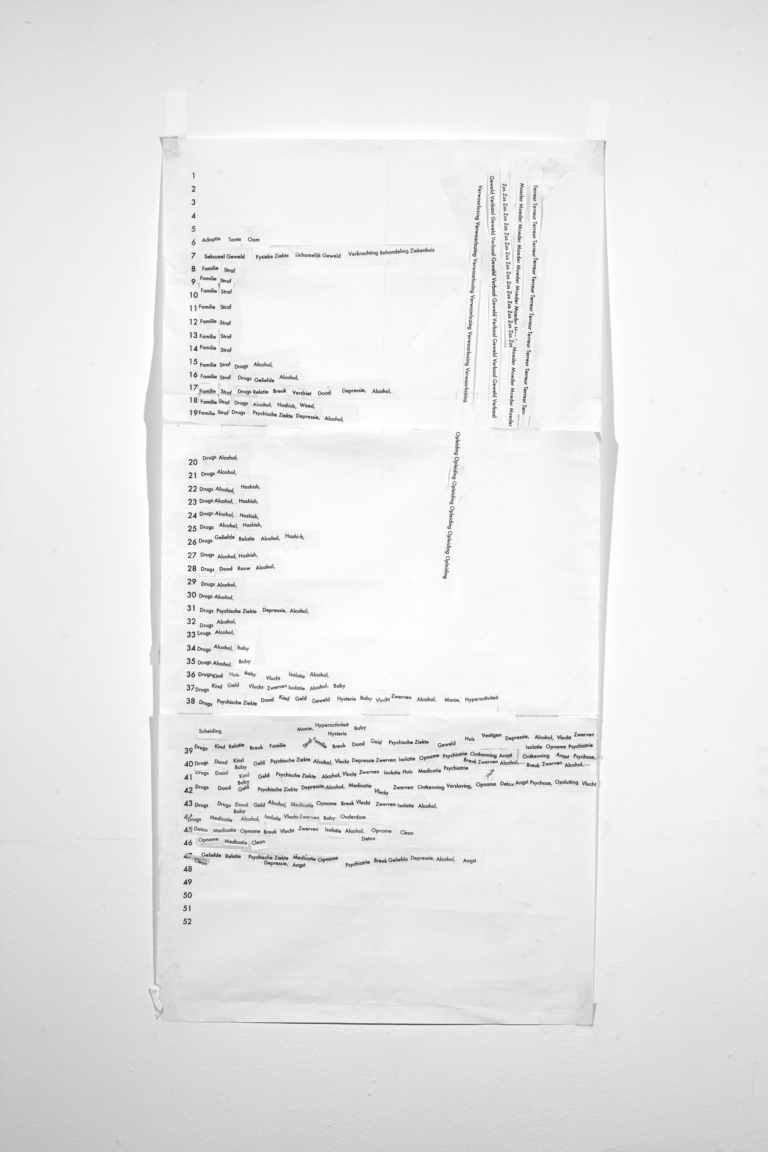 1
2
3
4
5
6 Adoptie Tante Oom
7 Seksueel Geweld Fysieke Ziekte Lichamelijk Geweld Verkrachting Behandeling Ziekenhuis
8 Familie Straf
9 Familie Straf
10 Familie Straf
11 Familie Straf
12 Familie Straf
13 Familie Straf
14 Familie Straf
15 Familie Straf Drugs Alcohol,
16 Familie Straf Drugs Geliefde Alcohol,
17 Familie Straf Drugs Relatie Breuk Verdriet Dood Depressie, Alcohol,
18 Familie Straf Drugs Alcohol, Hashish, Weed,
19 Familie Straf Drugs Psychische Ziekte Depressie, Alcohol,
Verwaarlozing Verwaarlozing Verwaarlozing Verwaarlozing Verwaarlozing Verwaarlozing
Geweld Verbaal Geweld Verbaal Geweld Verbaal Geweld Verbaal Geweld Verbaal Geweld Verbaal
Zus Zus Zus Zus Zus Zus Zus Zus Zus Zus
Moeder Moeder Moeder Moeder Moeder Moeder Moeder Moeder Moeder Moeder
Terreur Terreur Terreur Terreur Terreur Terreur Terreur Terreur Terreur
20 Drugs Alcohol,
21 Drugs Alcohol,
22 Drugs Alcohol, Hashish,
23 Drugs Alcohol, Hashish,
24 Drugs Alcohol, Hashish,
25 Drugs Alcohol, Hashish,
26 Drugs Geliefde Relatie Alcohol, Hashish,
27 Drugs Alcohol, Hashish,
28 Drugs Dood Rouw Alcohol,
29 Drugs Alcohol,
30 Drugs Alcohol,
31 Drugs Psychische Ziekte Depressie, Alcohol,
32 Drugs Alcohol,
33 Drugs Alcohol,
34 Drugs Alcohol, Baby
35 Drugs Alcohol, Baby
36 Drugs Kind Huis Baby Vlucht Isolatie Alcohol,
37 Drugs Kind Geld Vlucht Zwerven Isolatie Alcohol, Baby
38 Drugs Psychische Ziekte Dood Kind Geld Geweld Hysterie Baby Vlucht Zwerven Alcohol, Manie, Hyperactiviteit
Opleiding Opleiding Opleiding Opleiding Opleiding Opleiding
Scheiding Manie, Hyperactiviteit Baby
Hysterie Huis Vestigen Depressie, Alcohol, Vlucht Zwerven
39 Drugs Kind Relatie Breuk Familie Straf Familie Breuk Dood Geld Psychische Ziekte Geweld Isolatie Opname Psychiatrie
40 Drugs Dood Kind Baby Geld Psychische Ziekte Alcohol, Vlucht Depressie Zwerven Isolatie Opname Psychiatrie Ontkenning Angst Ontkenning Angst Psychose,
Breuk Zwerven Alcohol, Breuk Zwerven Alcohol,
41 Drugs Dood Kind Baby Geld Psychische Ziekte Alcohol, Vlucht Zwerven Isolatie Huis Medicatie Psychiatrie Huis
42 Drugs Dood Geld Psychische Ziekte Depressie, Alcohol, Medicatie Vlucht Zwerven Ontkenning Verslaving, Opname Detox Angst Psychose, Opsluiting Vlucht
43 Drugs Drugs Dood Baby Geld Alcohol, Medicatie Opname Breuk Vlucht Zwerven Isolatie Alcohol,
44 Drugs Medicatie Alcohol, Isolatie Vlucht Zwerven Baby Ouderdom
45 Detox Medicatie Opname Breuk Vlucht Zwerven Isolatie Alcohol, Opname Clean
46 Opname Medicatie Clean Detox
47 Clean Geliefde Relatie Psychische Ziekte Medicatie Opname Psychiatrie Breuk Geliefde Depressie, Alcohol, Angst
Depressie, Angst
48
49
50
51
52